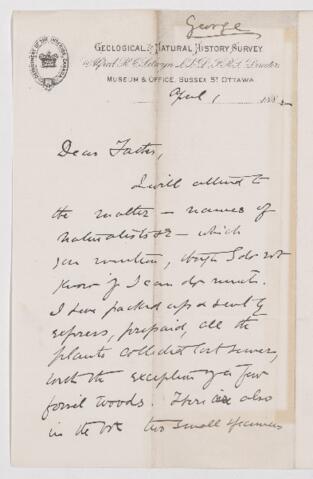 George
GEOLOGICAL & NATURAL HISTORY SURVEY
Alfred R. C. Selwyn, L.L.D., F.R.S., Director
MUSEUM & OFFICE, SUSSEX ST OTTAWA
April 1 1882
Dear Father,
I will attend to
the matter — names of
naturalists &c — which
you mention, though I do not
know if I can do much.
I have packed up & sent by
express, prepaid, all the
plants collected last summer,
with the exception of a few
fossil woods. There is also
in the box two small specimens